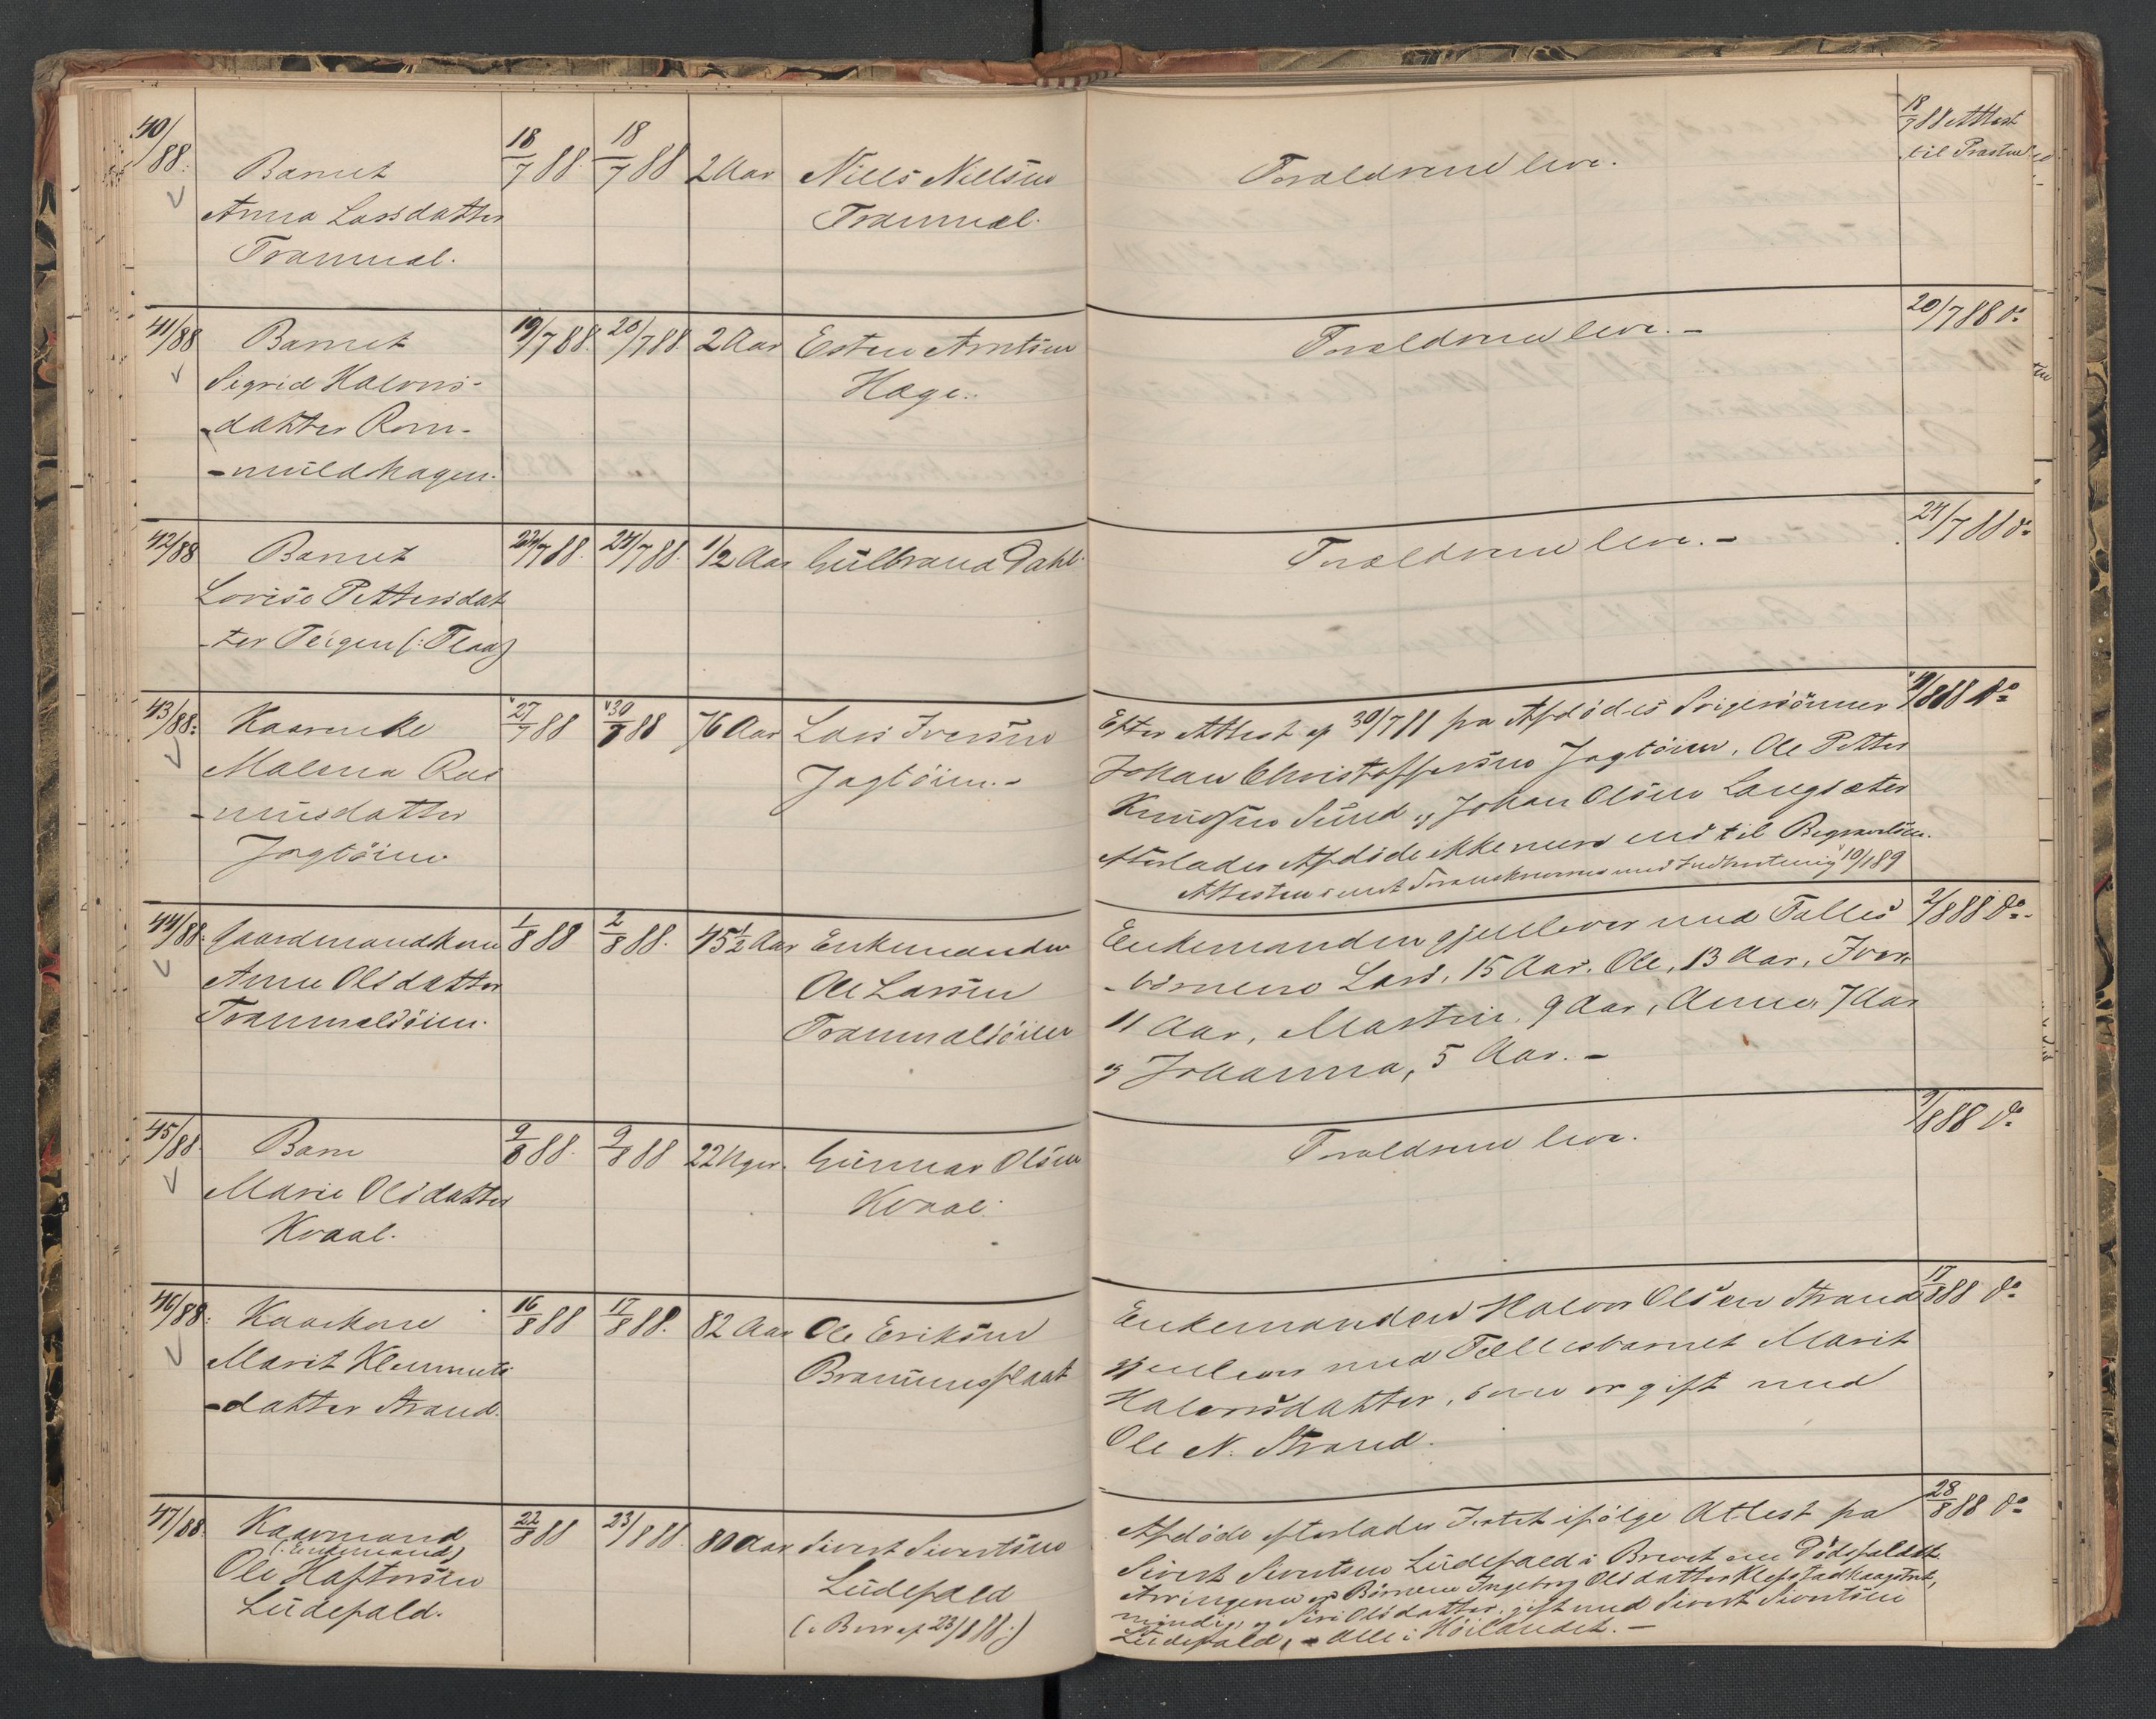 40/88. Barnet
Anna Larsdatter
Trammal.
18/7 88. 18/7 88 2 Aar
Niels Nielsen
Trammal.
Forældrene leve.
18/7 88 Attest
til Præsten
41/88 Barnet
Sigrid Halvors-
-datter Rom-
-muldhagen.
19/7 88. 20/7 88. 2 Aar
Esten Arntsen
Hage.
Forældrene leve. -
20/7 88 Do
42/88 Barnet
Lovise Pettersdat
-ter Teigen (: Flaa)
24/7 88. 24/7 88. 1/2 Aar
Gulbrand Dahl.
Forældrene leve. -
24/7 88 Do
43/88: Kaarenke
Malena Ras
-musdatter
Jagtöien
27/7 88 30/7 88 76 Aar
Lars Iversen
Jagtöien. -
Efter Attest af 30/7 88 fra Afdödes Svigersönner
Johan Christoffersen Jagtöien, Ole Petter
Knudsen Sund og Johan Olsen Langsæter
efterlader Afdöde ikke mere end til Begravelsen.
Attesten sendt med Indberetning 10/1 89
/8 88 Do
44/88: Gaardmandskone
Anne Olsdatter
Trammalsöien.
1/8 88 2/8 88. 45 1/2 Aar
Enkemanden
Ole Larsen
Trammalsöien
Enkemanden gjenlever med Fælles
-börnene Lars, 15 Aar, Ole, 13 Aar, Iver,
11 Aar, Martin, 9 Aar, Anne, 7 Aar
og Johanna, 5 Aar. -
2/8 88 Do -
45/88. Barn
Marie Olsdatter
Kvaal.
9/8 88. 9/8 88 22 Uger.
Gunnar Olsen
Kvaal.
Forældrene leve.
9/8 88 Do
46/88: Kaarkone
Marit Klemmets
-datter Strand.
16/8 88 17/8 88. 82 Aar
Ole Eriksen
Enkemanden Halvor Olsen Strand
gjenlever med Fællesbarnet Marit
Halvorsdatter, som er gift med
Ole N. Strand.
17/8 88 Do
47/88. Kaarmand
(: Enkemand)
Ole Haftorsen
Ludefald.
22/8 88 23/8 88. 80 Aar
Sivert Sivertsen
Ludefald
(i Brev af 23/8 88:)
Afdöde efterlader Intet ifölge Attest fra
Sivert Sivertsen Ludefald i Brevet om Dödsfaldet.
Arvingerne er Börnene Ingeborg Olsdatter
myndig, og Siri Olsdatter, gift med Sivert Sivertsen
Ludefald, - Alle i Höilandet. -
28/8 88 Do